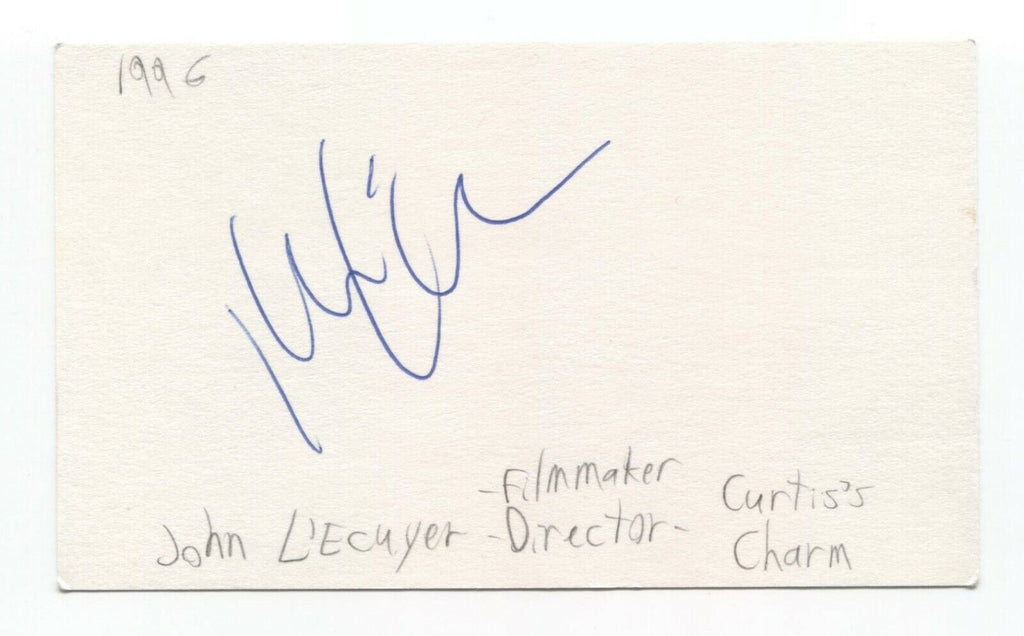 1996
-Filmmaker
John L'Ecuyer -Director-
Curtis's
Charm